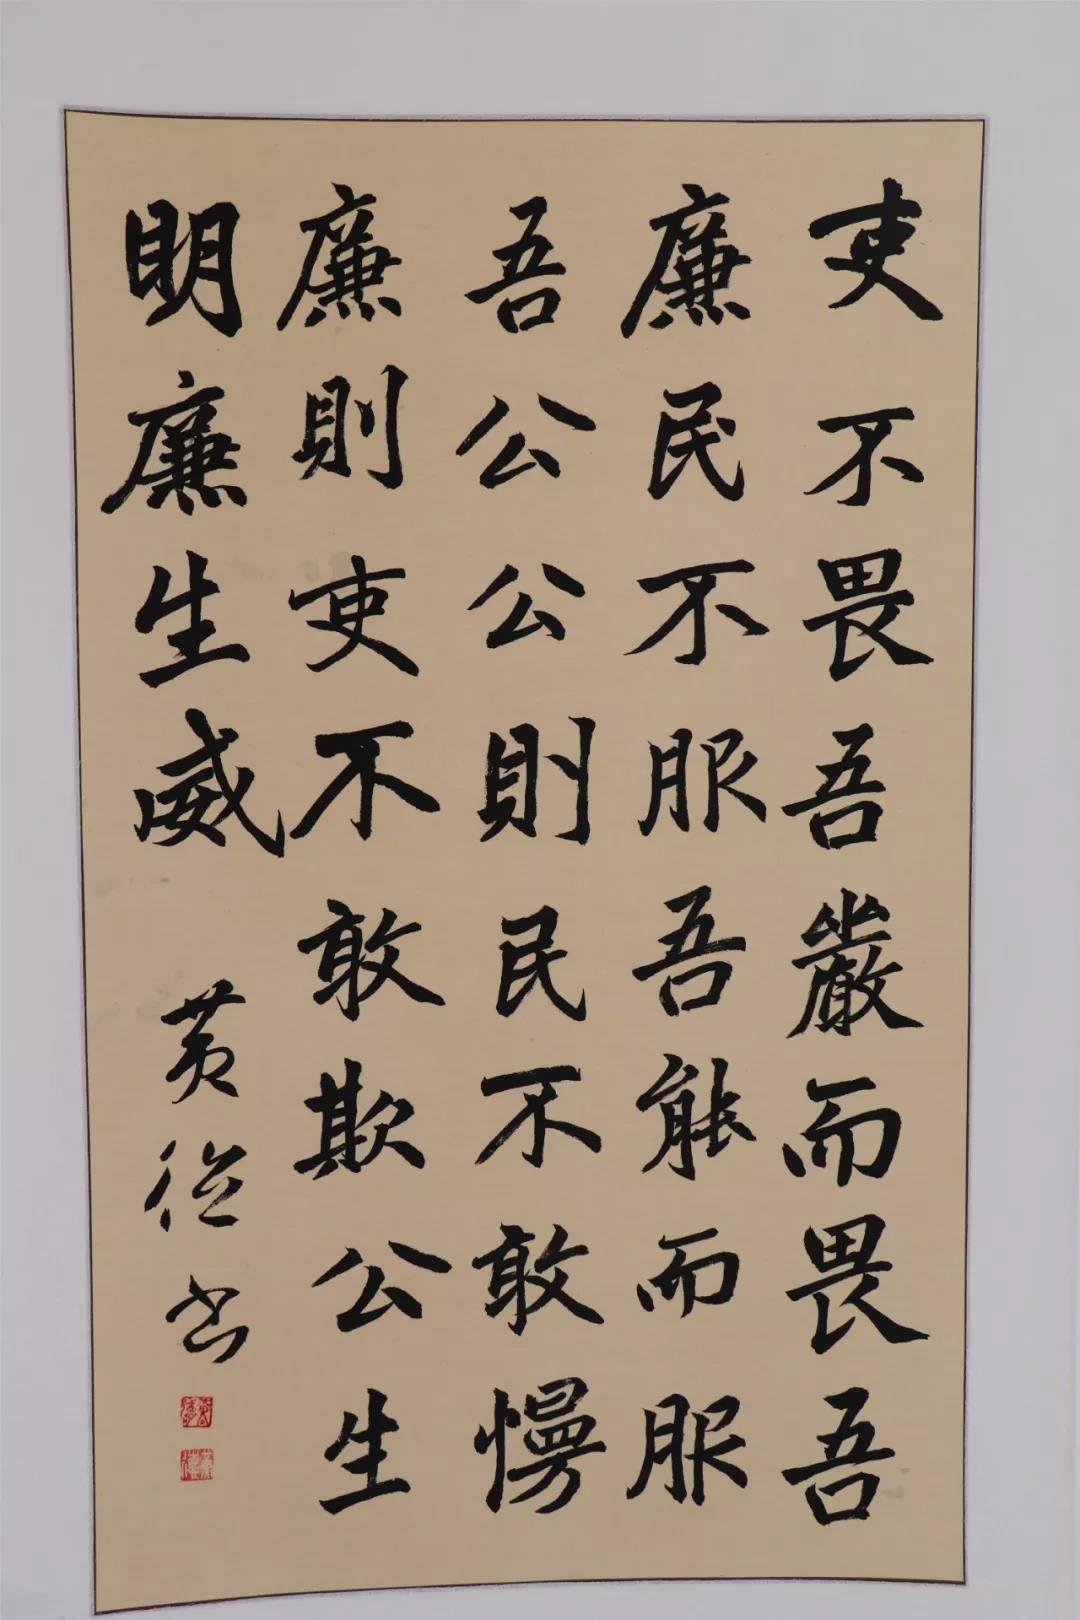 吏不畏吾嚴而畏吾
廉民不服吾能而服
吾公公則民不敢慢
廉則吏不敢欺公生
明廉生威
黄 書